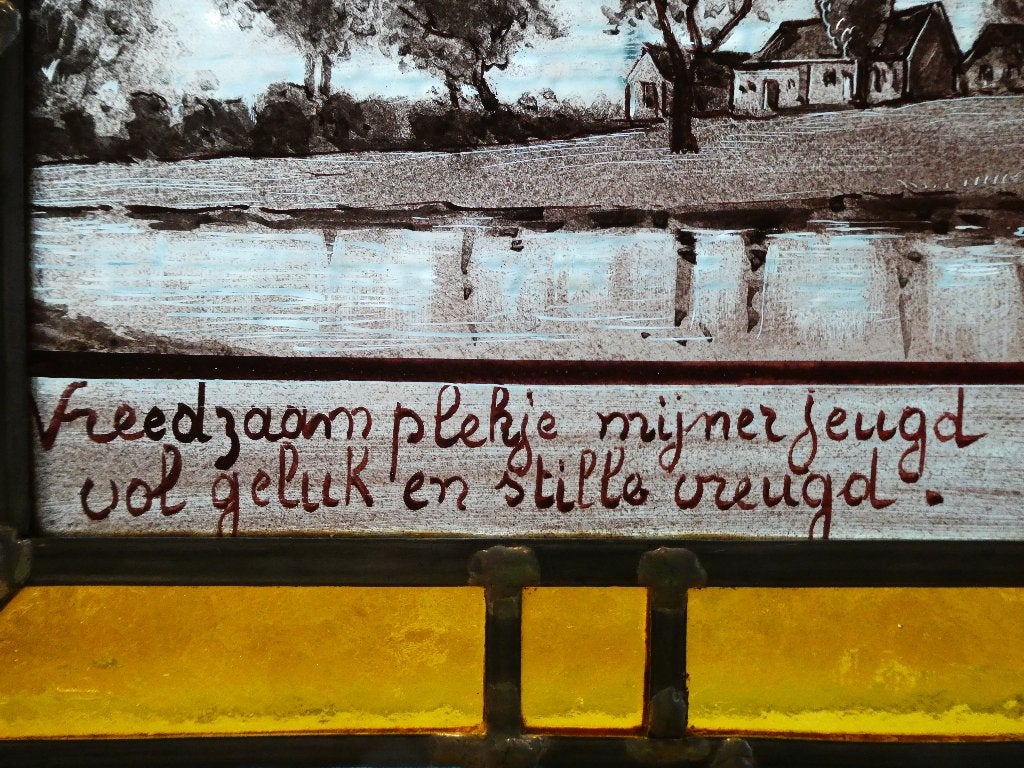 Vreedzaam plekje mijner jeugd
vol geluk en stille vreugd.